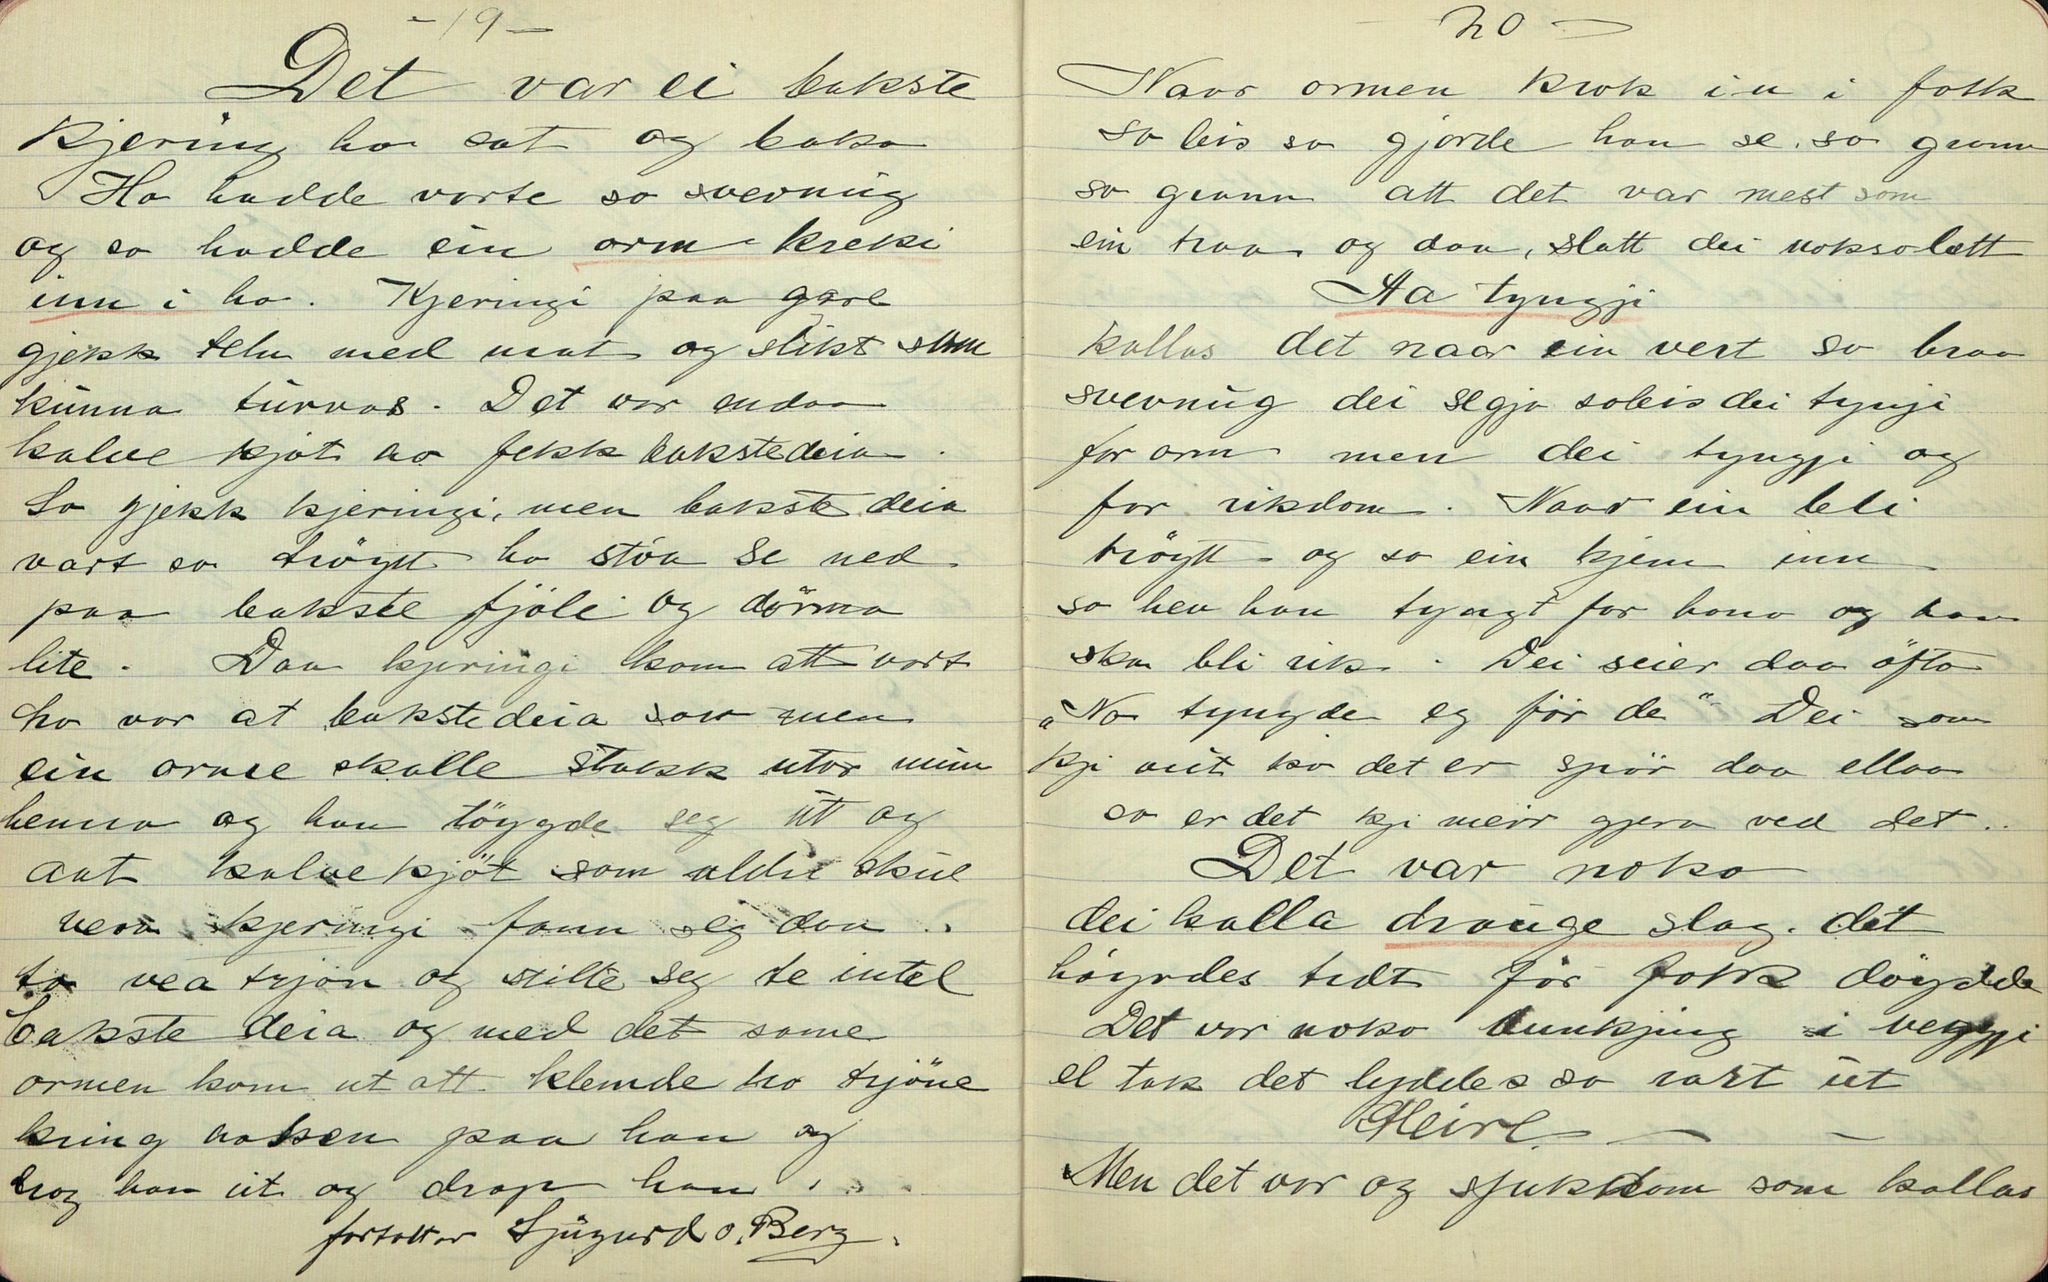 - 19 -
Det var ei bakste
kjering ho sat og baka
Ho hadde vorte so svevnug
og so hadde ein orm kreki
inn i ho. Kjeringi paa gare
gjekk telu med mat og slikt som
kunna turvas. Det var endaa
kalve kjøt ho fekk bakstedeia.
So gjekk kjeringi, men bakste deia
vart so trøytt ho støa se ned
paa bakste fjøli og dørma
lite. Daa kjeringi kom att vart
ho var at bakstedeia sov men
ein orme skalle stakk utor munn
henna og han tøygde seg ut og
aat kalvekjøt som aldri skul
vera kjeringi fann seg daa
to vea trjon og stilte seg te intel
bakste deia og med det same
ormen kom ut att klemde ho trjøne
kring nakken paa han og
drog han ut og drap han.
fortaltar Sjugurd O. Berg.
20 -
Naar ormen krok inn i folk
so leis so gjorde han se so grann
so grann att det var mest som
ein traa og daa, slatt dei nokso lett
Aa tyngji
kallas det naar ein vert so braa
svevnug dei segja soleis dei tyngji
for orm men dei tyngji og
for rikdom. Naar ein bli
trøytt og so ein kjem inn
so hev han tyngt for hono og han
ska bli rik. Dei seier daa øfta
"No tyngde eg før de" Dei som
kji veit ko det er spør daa ellaa
so er det kji meir gjera ved det..
Det var noko
dei kalla drauge slag. det
høyrdes tidt før folk døydde
Det var noko dunkjing i veggji
el tak det lyddes so rart ut
Heire — —
Men det var og sjukdom som kallas